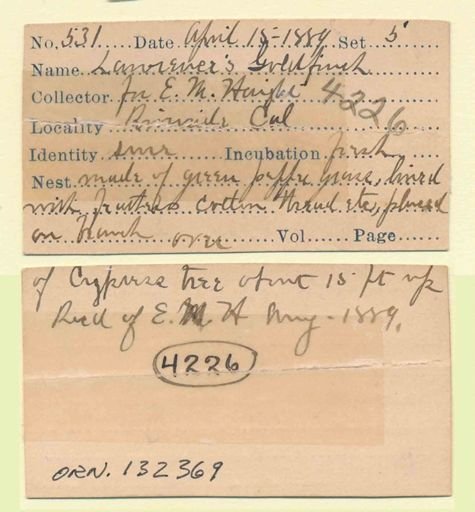 No. 531 Date April 15-1889 Set 5
Name Lawrence's Goldfinch
Collector for E. M. Haight 4226
Locality Riverside Cal
Identity sure Incubation fresh
Nest made of green peppe grass, lined
with feathers cotton thread etc, placed
on branch over Vol Page
of Cypress tree about 15 ft up
Recd of E. M. H Aug - 1889.
4226
ORN. 132369